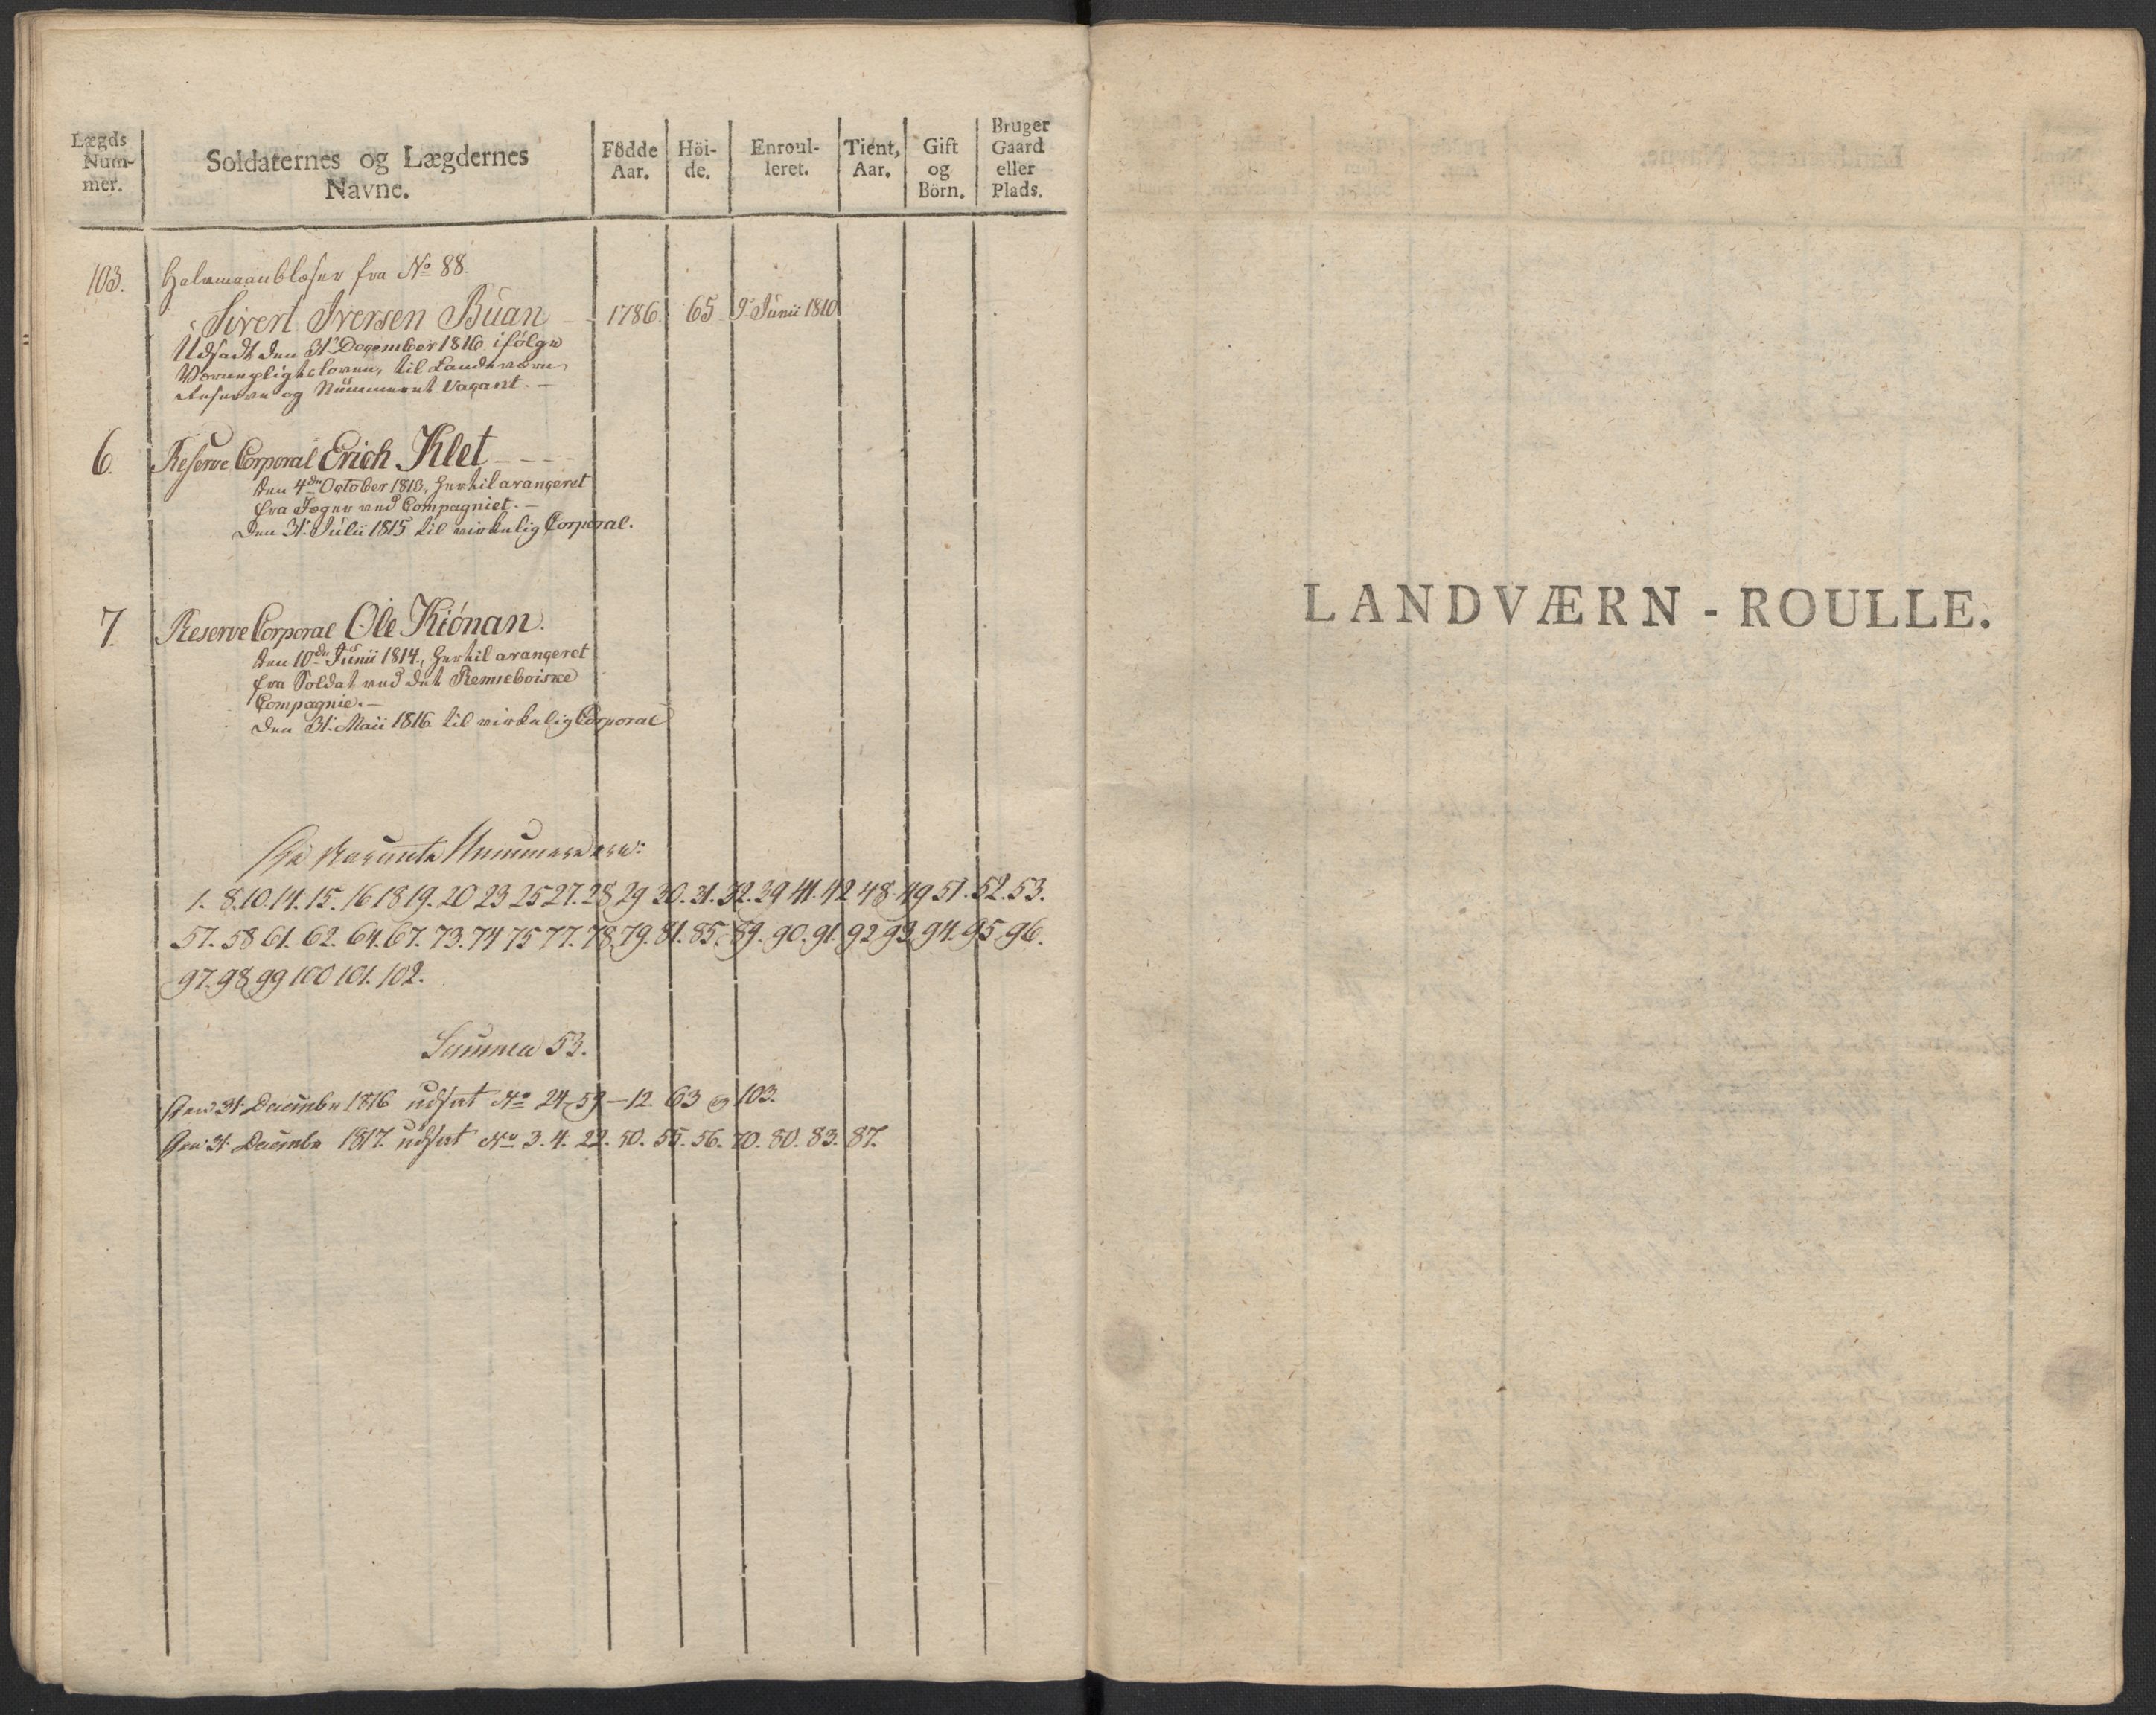 Lægds Num- mer.
Soldaternes og Lægdernes Navne.
Födde Aar.
Höi- de.
Enroul- leret.
Tient, Aar.
Gift og Börn.
Bruger Gaard eller Plads.
103. Halvmaanblæser fra No 88.
Sivert Iversen Buan - 1786. 65 9de Junii 1810
Udsadt den 31te December 1816 ifølge
Værnepligtsloven, til Landeværns
Reserve og Nummeret Vacant. -
6. Reserve Corporal Erich Klet - - - -
den 4de October 1813, hertil arangeret
fra Jæger ved Compagniet. -
Den 31te Julii 1815 til virkelig Corporal.
7. Reserve Corporal Ole Kiönan.
den 10de Junii 1814, hertil arangeret
fra Soldat ved det Remmeboiske
Compagnie. -
Den 31te Maii 1816 til virkelig Corporal
De Vacante Nummere ere:
1. 8. 10. 14. 15. 16 18 19. 20 23 25 27. 28 29 30. 31. 32. 39 41. 42 48 49 51. 52. 53.
57. 58 61. 62. 64. 67. 73. 74 75 77. 78. 79. 81. 85. 89. 90. 91. 92 93 94. 95 96.
97. 98 99 100 101. 102.
Summa 53.
Den 31te December 1816 udsat No 24, 59 - 12. 63 og 103.
Den 31te December 1817. udsat No 3. 4. 22. 50. 55. 56. 70. 80. 83. 87.
LANDVÆRN - ROULLE.